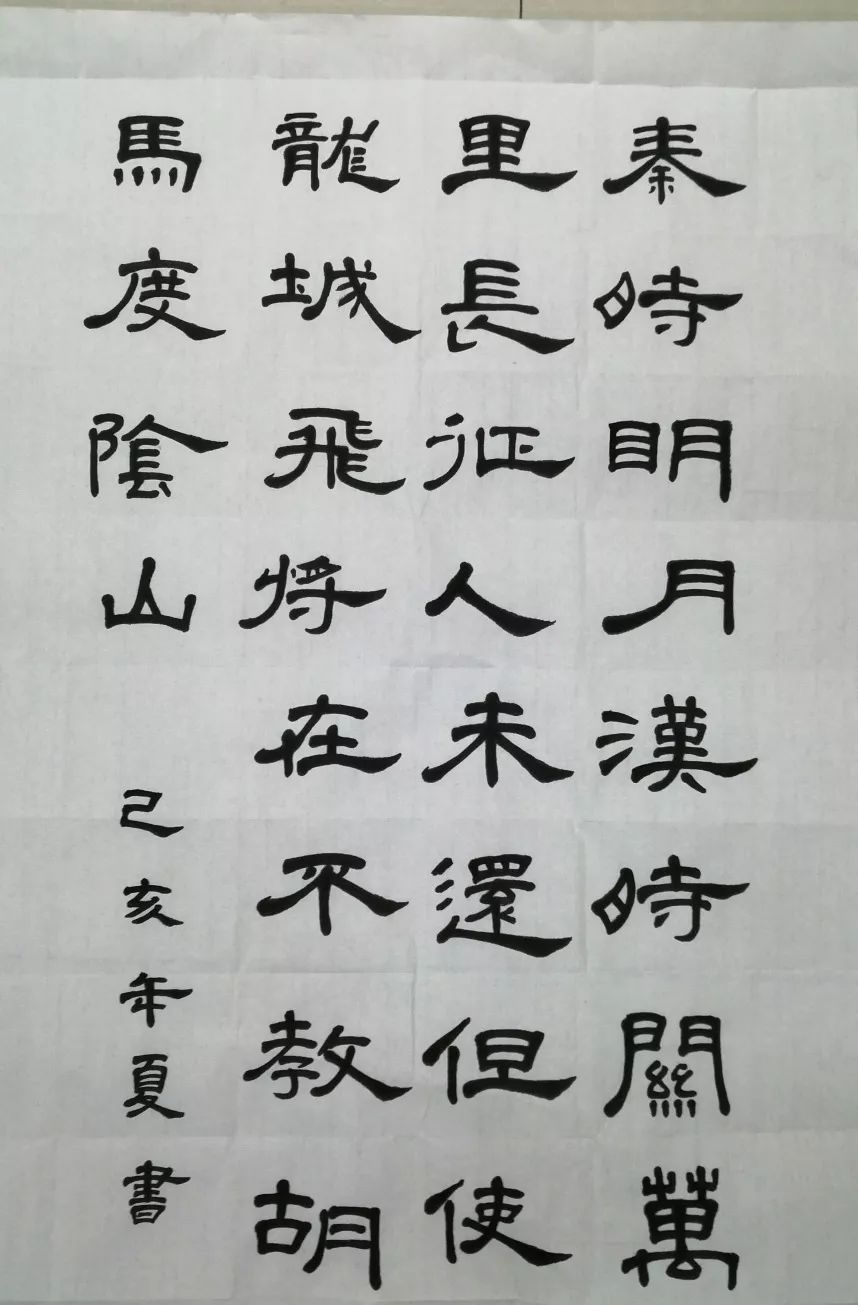 秦時明月漢時關萬
里長征人未還但使
龍城飛将在不教胡
馬度陰山
己亥年夏書